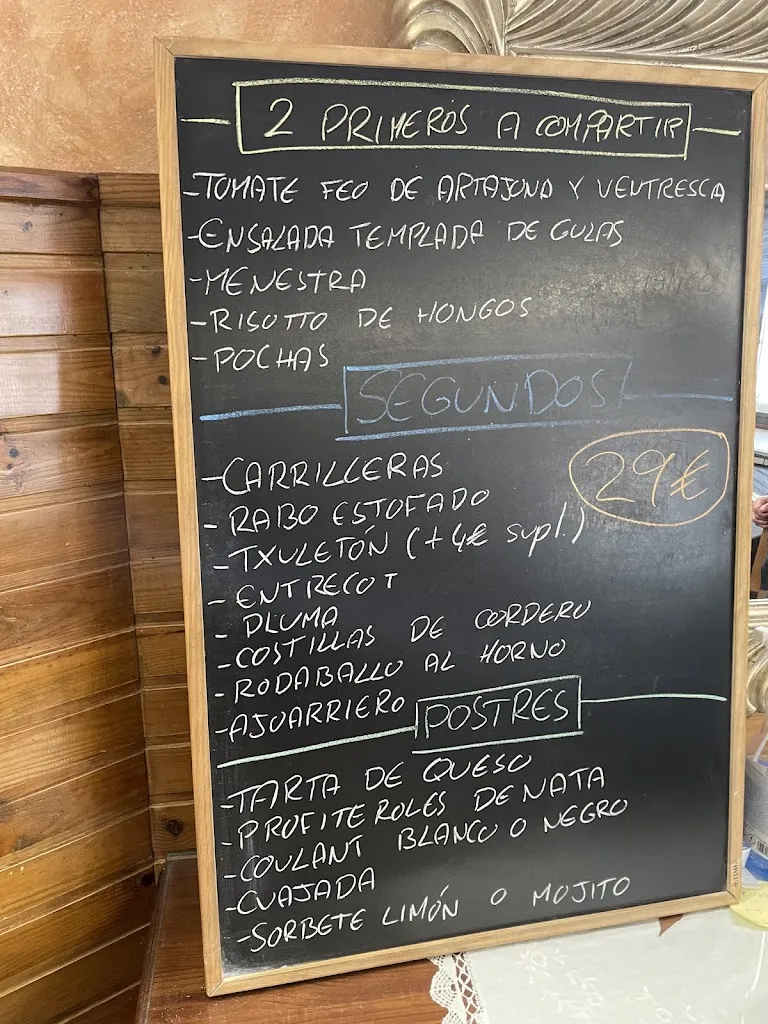 2 PRIMEROS A COMPARTIR
-TOMATE FEO DE ARTAJONA Y VENTRESCA
-ENSALADA TEMPLADA DE GULAS
-MENESTRA
-RISOTTO DE HONGOS
-POCHAS
SEGUNDOS
29€
-CARRILLERAS
-RABO ESTOFADO
-TXULETÓN (+4€ supl.)
-ENTRECOT
-PLUMA
-COSTILLAS DE CORDERO
-RODABALLO AL HORNO
-AJOARRIERO
POSTRES
-TARTA DE QUESO
-PROFITEROLES DE NATA
-COULANT BLANCO O NEGRO
-CUAJADA
-SORBETE LIMÓN O MOJITO